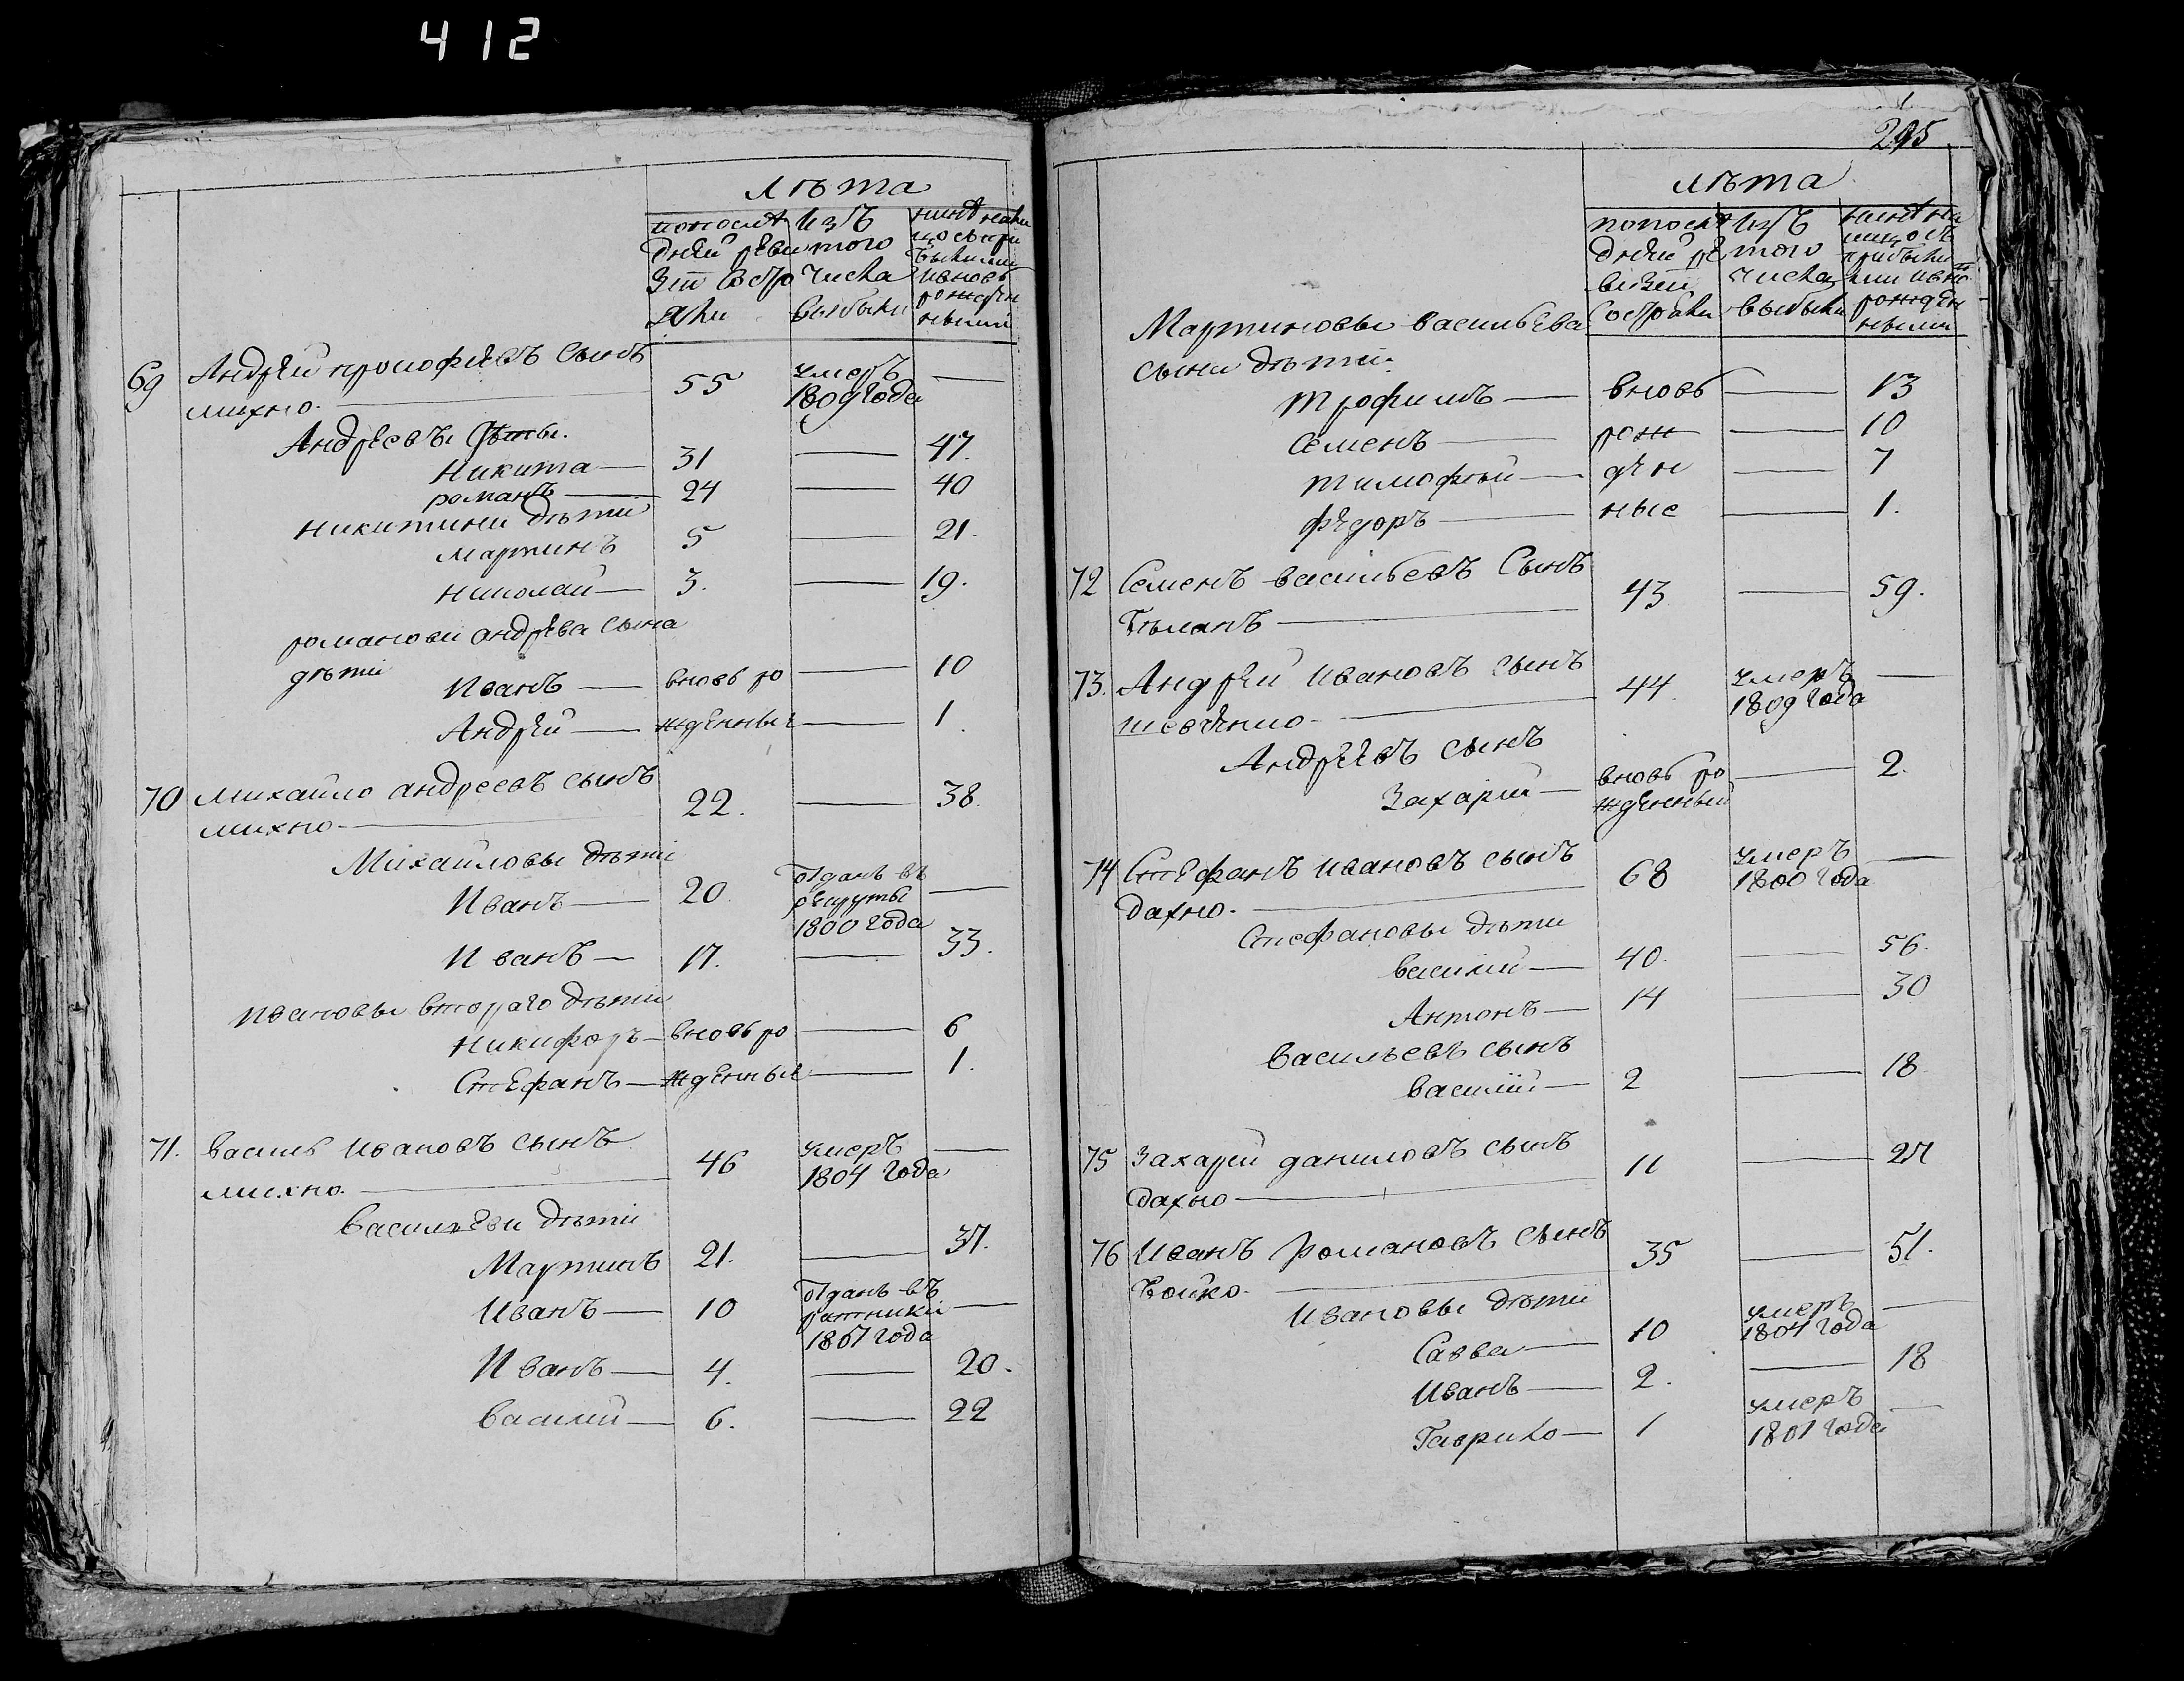 412
лѣта
попослѣ
дней реви
зіи состо
яли
изъ
того
числа
выбыли
нынѣ нали
цо съ при
былыми
ивновь
рожден
ными
69 Андрей прокофіевъ сынъ 55 умеръ —
михно. 1809 года
Андреевы дѣти.
Никита — 31 — 47.
романъ — 24 — 40
никитини дѣти
мартинъ 5 — 21.
николай — 3. — 19.
романови андрѣева сына
дѣти
Иванъ — вновь ро — 10
Андрей — жденные — 1.
70 михайло андреевъ сынъ 22. — 38.
михно.
Михайловы дѣти
Иванъ — 20. отданъ въ —
рекруты
1800 года
Иванъ — 17. — 33.
ивановы втораго дѣти
никифоръ — вновь ро — 6
Стефанъ — жденные — 1.
71. василь ивановъ сынъ 46 умеръ —
михно. 1804 года
васильеви дѣти
Мартинъ 21. — 37.
иванъ — 10 отданъ въ —
ратники
1807 года
Иванъ — 4. — 20.
василій — 6. — 22
295
лѣта
попослѣ
дней ре
визіи
состояли
изъ
того
числа
выбыли
нынѣ на
лицо съ
прибылы
ми ивно
рожден
ными
Мартиновы васильева
сына дѣти.
трофимъ — вновь — 13
семенъ — рож — 10
тимофѣй — ден — 7
федоръ — ные — 1.
72 Семенъ васильевъ сынъ 43 — 59.
73. Андрей ивановъ сынъ 44. умеръ —
шевченко 1809 года
Андреевъ сынъ
Захарій — вновь ро — 2.
жденный
74 Стефанъ ивановъ сынъ 68 умеръ —
дахно. 1800 года
Стефановы дѣти
василій — 40. — 56.
Антонъ — 14 — 30
васильевъ сынъ
василій — 2 — 18
75 Захарій даниловъ сынъ 11 — 27
дахно
76 иванъ романовъ сынъ 35 — 51.
бойко.
ивановы дѣти
Савва — 10 умеръ —
1804 года
иванъ — 2. — 18
Гаврило — 1 умеръ —
1801 года